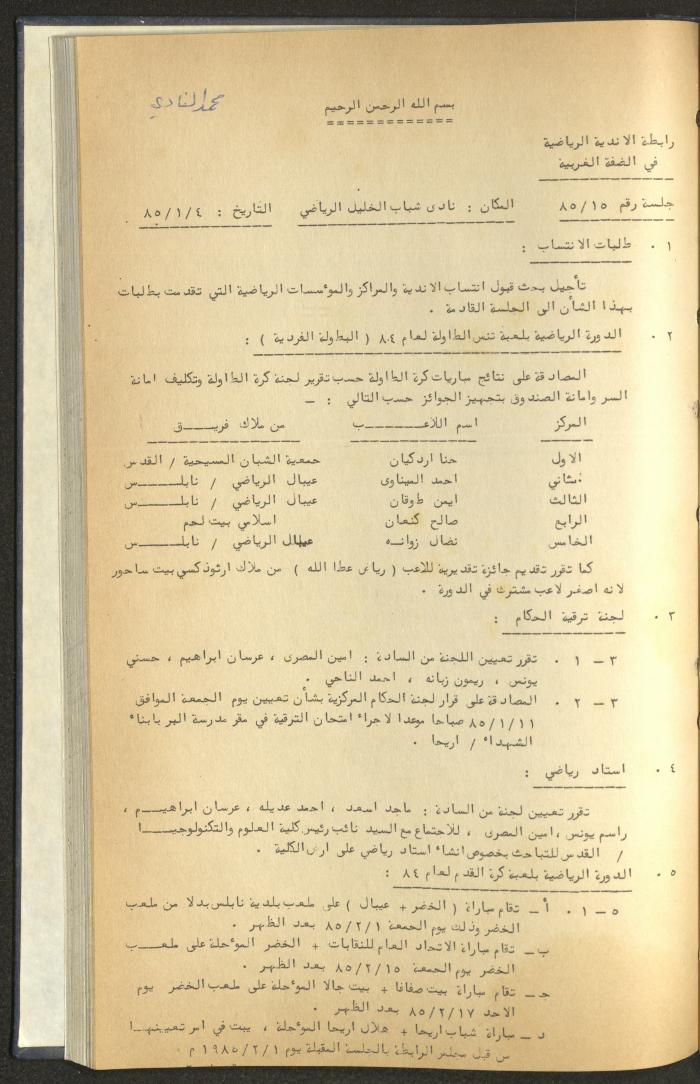 محمد النادي
بسم الله الرحمن الرحيم
رابطة الاندية الرياضية
في الضفة الغربية
جلسة رقم ٨٥/١٥ المكان : نادى شباب الخليل الرياضي التاريخ : ٨٥/١/٤
١ . طلبات الانتساب :
تأجيل بحث قبول انتساب الاندية والمراكز والمؤسسات الرياضية التي تقدمت بطلبات
بهذا الشأن الى الجلسة القادمة .
٢ . الدورة الرياضية بلعبة تنس الطاولة لعام ٨٤ ( البطولة الفردية ) :
المصادقة على نتائج مباريات كرة الطاولة حسب تقرير لجنة كرة الطاولة وتكليف امانة
السر وامانة الصندوق بتجهيز الجوائز حسب التالي : ــ
المركز اسم اللاعـــــــب من ملاك فريـــــق
الاول حنا اردكيان جمعية الشبان المسيحية / القدس
الثاني احمد الميناوى عيبال الرياضي / نابلـــــس
الثالث ايمن طوقان عيبال الرياضي / نابلـــــس
الرابع صالح كنعان اسلامي بيت لحم
الخامس نضال زوانـه عيبال الرياضي / نابلـــــس
كما تقرر تقديم جائزة تقديرية للاعب ( رياض عطا الله ) من ملاك ارثوذكسي بيت ساحور
لانه اصغر لاعب مشترك في الدورة .
٣ . لجنة ترقية الحكام :
٣ – ١ . تقرر تعيين اللجنة من السادة : امين المصرى ، عرسان ابراهيم ، حسني
يونس ، ريمون زبانه ، احمد الناجي .
٣ – ٢ . المصادقة على قرار لجنة الحكام المركزية بشأن تعيين يوم الجمعة الموافق
٨٥/١/١١ صباحا موعدا لاجراء امتحان الترقية في مقر مدرسة البر بابناء
الشهداء / اريحا .
٤ . استاد رياضي :
تقرر تعيين لجنة من السادة : ماجد اسعد ، احمد عديله ، عرسان ابراهيـــم ،
راسم يونس ، امين المصرى ، للاجتماع مع السيد نائب رئيس كلية العلوم والتكنولوجيـــا
/ القدس للتباحث بخصوص انشاء استاد رياضي على ارض الكلية .
٥ . الدورة الرياضية بلعبة كرة القدم لعام ٨٤ :
٥ – ١ . أ ــ تقام مباراة ( الخضر + عيبال ) على ملعب بلدية نابلس بدلا من ملعب
الخضر وذلك يوم الجمعة ٨٥/٢/١ بعد الظهر .
ب ــ تقام مباراة الاتحاد العام للنقابات + الخضر المؤجلة على ملعـــب
الخضر يوم الجمعة ٨٥/٢/١٥ بعد الظهر .
جـ ــ تقام مباراة بيت صفافا + بيت جالا المؤجلة على ملعب الخضر يوم
الاحد ٨٥/٢/١٧ بعد الظهر .
د ــ مباراة شباب اريحا + هلال اريحا المؤجلة ، يبت في امر تعيينهـــا
من قبل مجلس الرابطة بالجلسة المقبلة يوم ١٩٨٥/٢/١ م